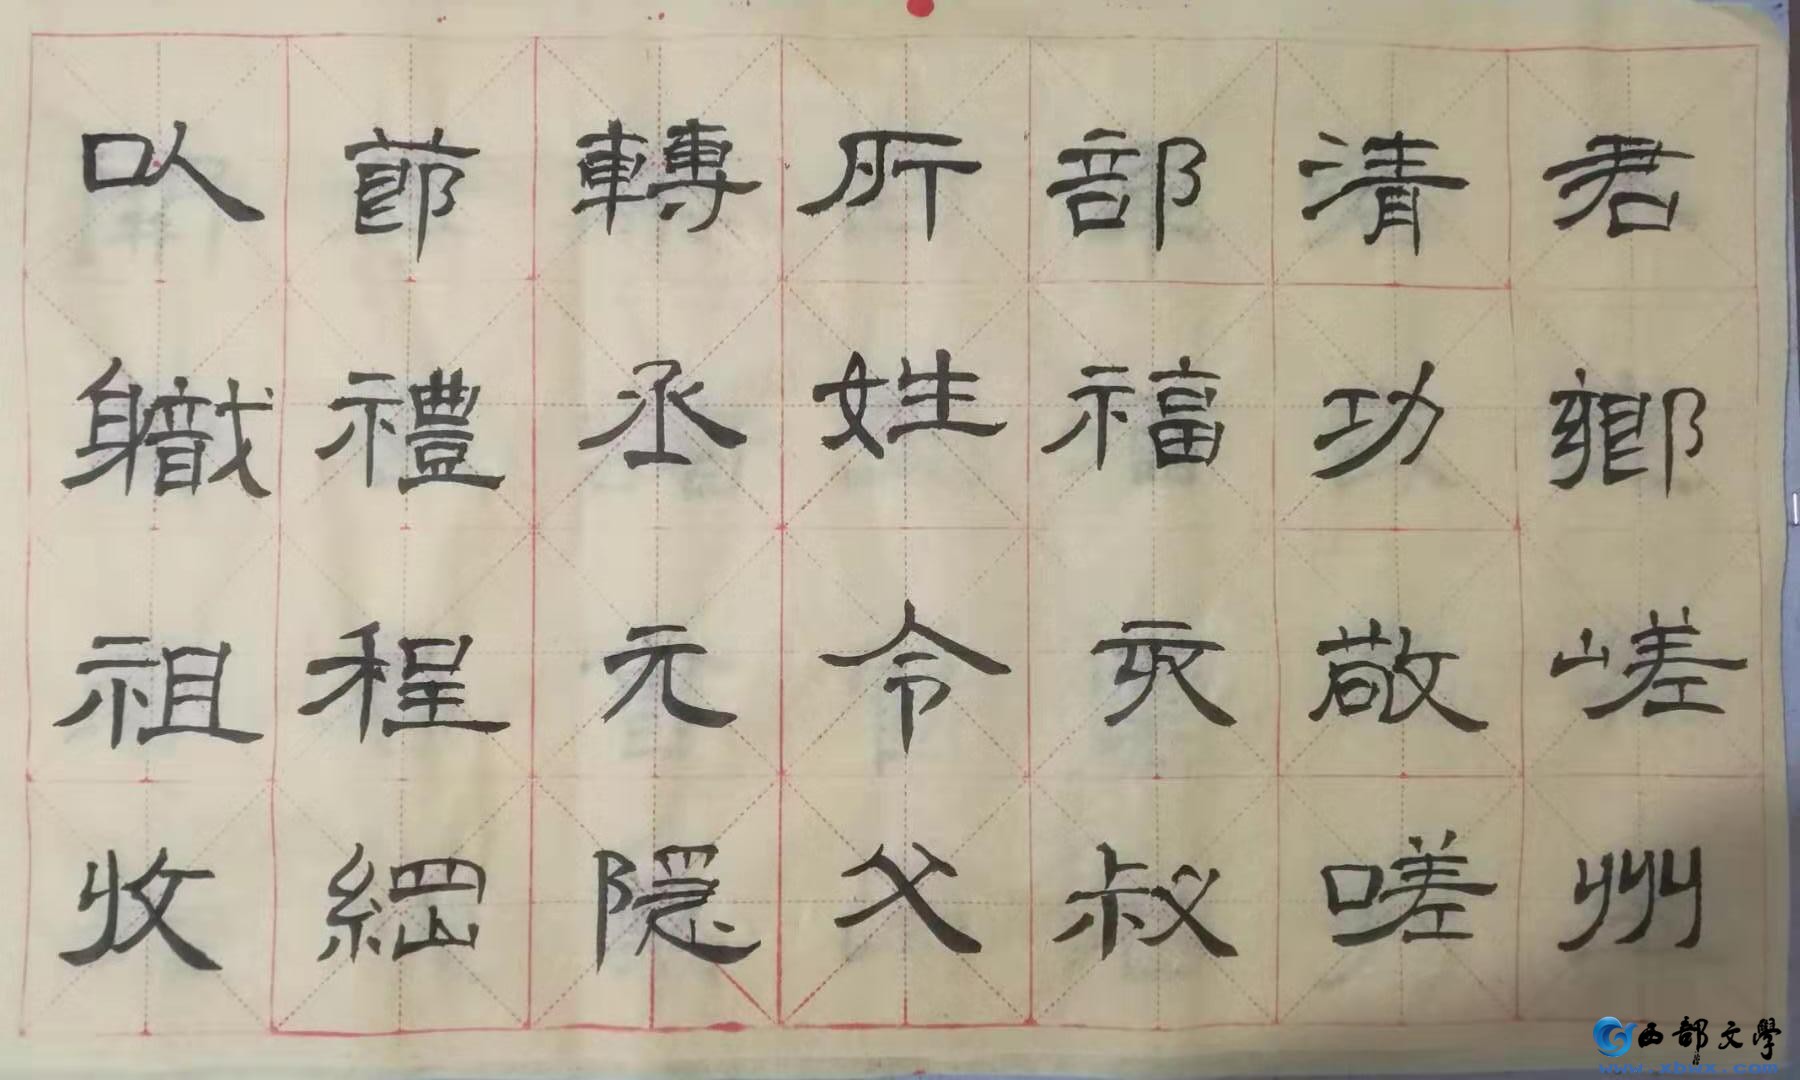 君鄉嵯州
清功敬嗟
部福亥叔
所姓令父
轉丞元隱
節禮程綱
以職祖收
西部文學
www.xbwx.com